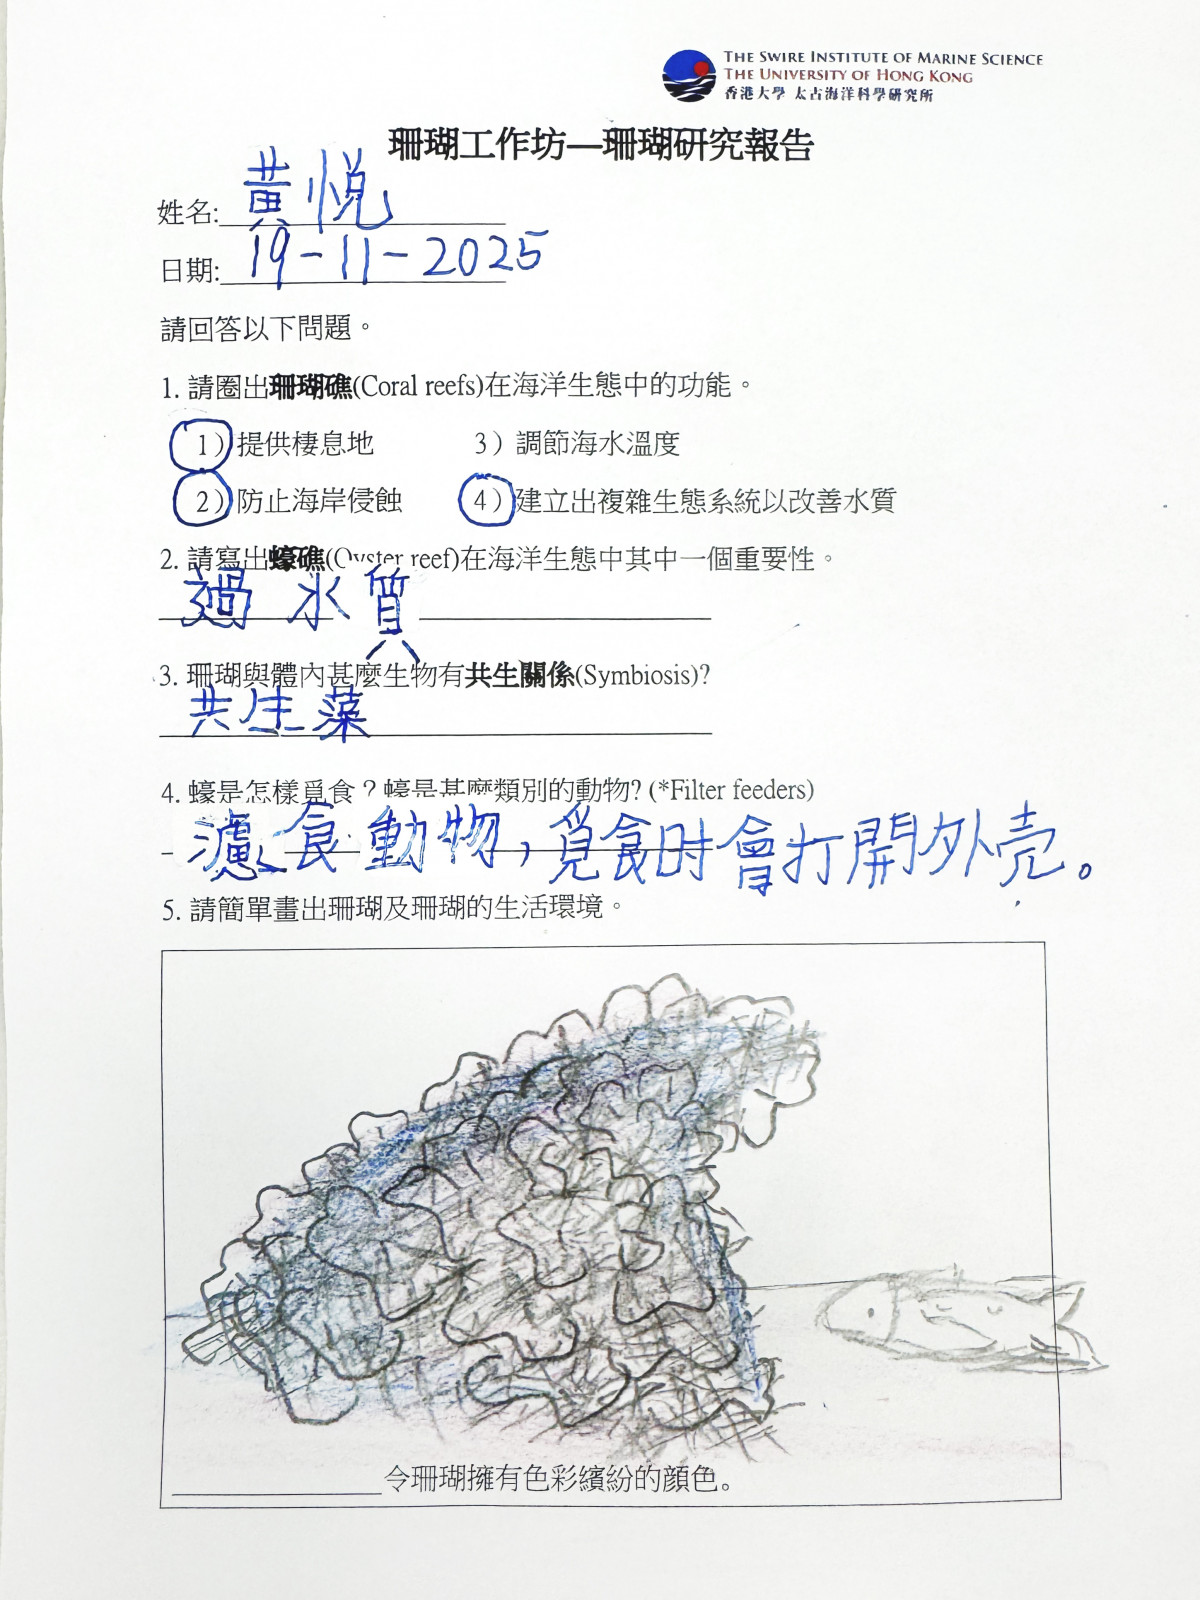 THE SWIRE INSTITUTE OF MARINE SCIENCE
THE UNIVERSITY OF HONG KONG
香港大學 太古海洋科學研究所
珊瑚工作坊—珊瑚研究報告
姓名: 黃悅
日期: 19-11-2025
請回答以下問題。
1. 請圈出珊瑚礁(Coral reefs)在海洋生態中的功能。
1）提供棲息地 3）調節海水溫度
2）防止海岸侵蝕 4）建立出複雜生態系統以改善水質
2. 請寫出蠔礁(Oyster reef)在海洋生態中其中一個重要性。
過水質
3. 珊瑚與體內甚麼生物有共生關係(Symbiosis)?
共生藻
4. 蠔是怎樣覓食？蠔是甚麼類別的動物? (*Filter feeders)
濾食動物，覓食时會打開外壳。
5. 請簡單畫出珊瑚及珊瑚的生活環境。
令珊瑚擁有色彩繽紛的顏色。